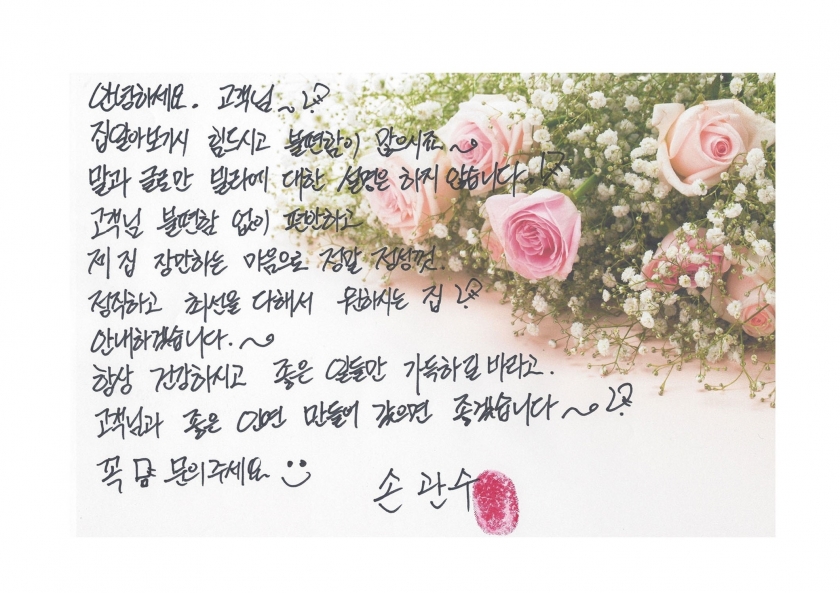 안녕하세요. 고객님~
집알아보기시 힘드시고 불편함이 많으시죠~
말과 글로만 빌라에 대한 설명은 하지 않습니다.
고객님 불편함 없이 편안하고
제 집 장만하는 마음으로 정말 정성껏.
정직하고 최선을 다해서 원하시는 집
안내하겠습니다.~
항상 건강하시고 좋은 일들만 가득하길 바라고.
고객님과 좋은 인연 만들어 갔으면 좋겠습니다~
꼭 문의주세요
손관수